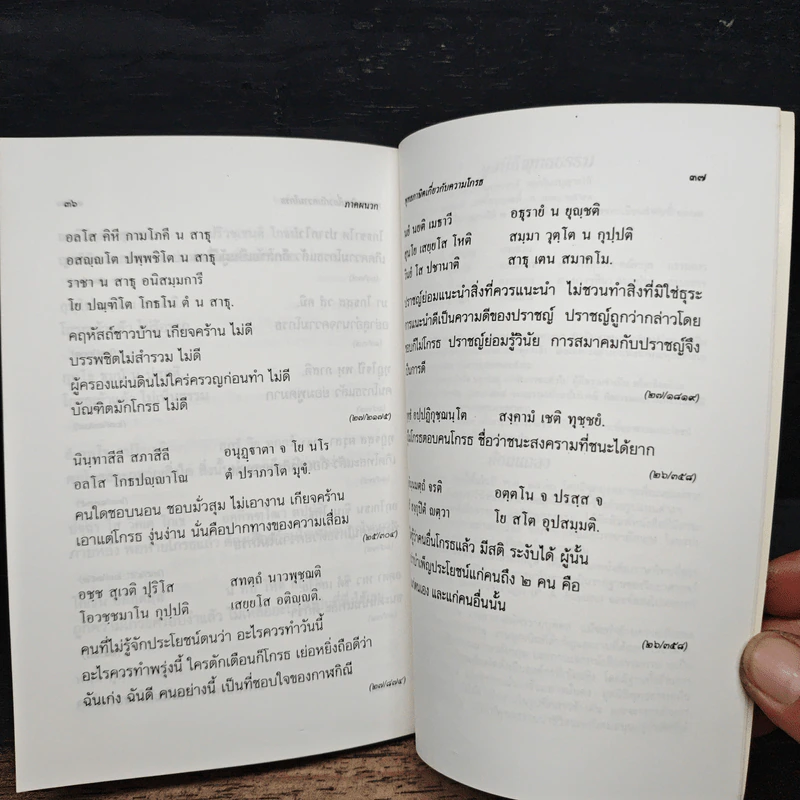 ๓๖
ภาคผนวก
อลโส คิหี กามโภคี น สาธุ
อสญฺญโต ปพฺพชิโต น สาธุ
ราชา น สาธุ อนิสมฺมการี
โย ปณฺฑิโต โกธโน ตํ น สาธุ.
คฤหัสถ์ชาวบ้าน เกียจคร้าน ไม่ดี
บรรพชิตไม่สำรวม ไม่ดี
ผู้ครองแผ่นดินไม่ใคร่ครวญก่อนทำ ไม่ดี
บัณฑิตมักโกรธ ไม่ดี
(๒๗/๒๑๗๕)
นินฺทาสีลี สภาสีลี อนุฏฺฐาตา จ โย นโร
อลโส โกธปญฺญาโณ ตํ ปราภวโต มุขํ.
คนใดชอบนอน ชอบมั่วสุม ไม่เอางาน เกียจคร้าน
เอาแต่โกรธ งุ่นง่าน นั่นคือปากทางของความเสื่อม
(๒๕/๓๐๔)
อชฺช สุเวติ ปุริโส สทตฺถํ นาวพุชฺฌติ
โอวชฺชมาโน กุปฺปติ เสยฺยโส อติญฺญติ.
คนที่ไม่รู้จักประโยชน์ตนว่า อะไรควรทำวันนี้
อะไรควรทำพรุ่งนี้ ใครตักเตือนก็โกรธ เย่อหยิ่งถือดีว่า
ฉันเก่ง ฉันดี คนอย่างนี้ เป็นที่ชอบใจของกาฬกิณี
(๒๗/๘๗๔)
พุทธภาษิตเกี่ยวกับความโกรธ
๓๗
นยติ เมธาวี อธุรายํ น ยุญฺชติ
เสยฺยโส โหติ สมฺมา วุตฺโต น กุปฺปติ
โส ปชานาติ สาธุ เตน สมาคโม.
ปราชญ์ย่อมแนะนำสิ่งที่ควรแนะนำ ไม่ชวนทำสิ่งที่มิใช่ธุระ
การแนะนำดีเป็นความดีของปราชญ์ ปราชญ์ถูกว่ากล่าวโดย
ชอบก็ไม่โกรธ ปราชญ์ย่อมรู้วินัย การสมาคมกับปราชญ์จึง
เป็นการดี
(๒๗/๑๘๑๙)
อปฺปฏิกุชฺฌนฺโต สงฺคามํ เชติ ทุชฺชยํ.
ไม่โกรธตอบคนโกรธ ชื่อว่าชนะสงครามที่ชนะได้ยาก
(๒๖/๓๕๘)
จรติ อตฺตโน จ ปรสฺส จ
ญตฺวา โย สโต อุปสมฺมติ.
รู้ว่าคนอื่นโกรธแล้ว มีสติ ระงับได้ ผู้นั้น
บำเพ็ญประโยชน์แก่คนถึง ๒ คน คือ
และแก่คนอื่นนั้น
(๒๖/๓๕๘)